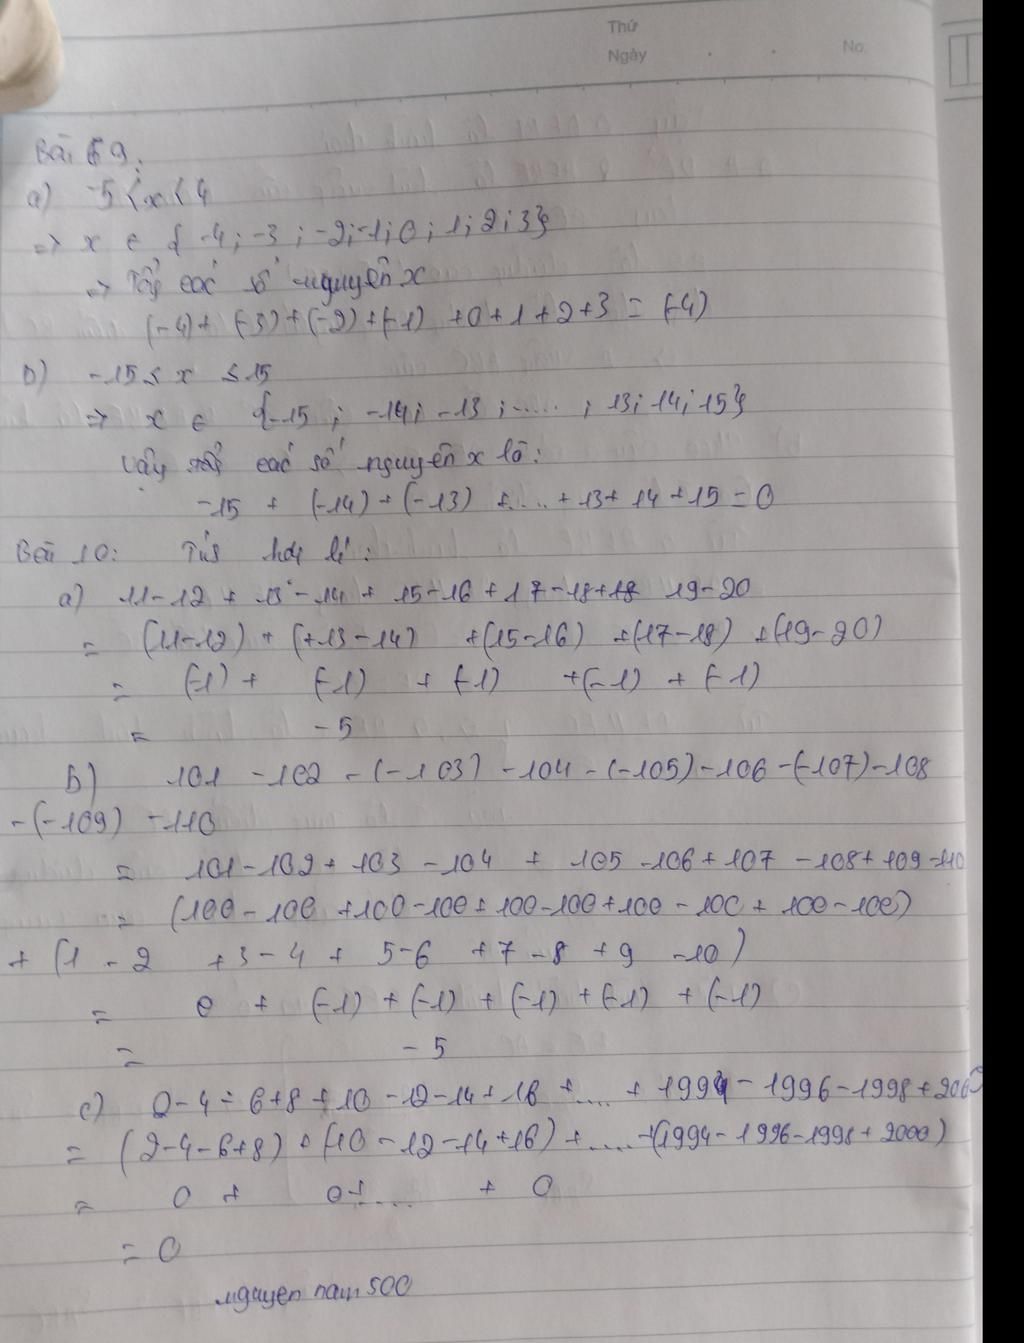 Thứ
Ngày . . No.
Bài 9:
a) -5 < x < 4
=> x ∈ { -4; -3; -2; -1; 0; 1; 2; 3}
=> Tổng các số nguyên x
(-4) + (-3) + (-2) + (-1) + 0 + 1 + 2 + 3 = (-4)
b) -15 ≤ x ≤ 15
=> x ∈ {-15; -14; -13; .....; 13; 14; 15}
Vậy tổng các số nguyên x là:
-15 + (-14) + (-13) + .... + 13 + 14 + 15 = 0
Bài 10: hợp lí:
a) 11 - 12 + 13 - 14 + 15 - 16 + 17 - 18 + 19 - 20
= (11 - 12) + (+13 - 14) + (15 - 16) + (17 - 18) + (19 - 20)
= (-1) + (-1) + (-1) + (-1) + (-1)
= -5
b) 101 - 102 - (-103) - 104 - (-105) - 106 - (-107) - 108
- (-109) - 110
= 101 - 102 + 103 - 104 + 105 - 106 + 107 - 108 + 109 - 110
= (100 - 100 + 100 - 100 + 100 - 100 + 100 - 100 + 100 - 100)
+ (1 - 2 + 3 - 4 + 5 - 6 + 7 - 8 + 9 - 10)
= 0 + (-1) + (-1) + (-1) + (-1) + (-1)
= -5
c) 2 - 4 - 6 + 8 + 10 - 12 - 14 + 16 + .... + 1994 - 1996 - 1998 + 2000
= (2 - 4 - 6 + 8) + (10 - 12 - 14 + 16) + .... + (1994 - 1996 - 1998 + 2000)
= 0 + 0 + .... + 0
= 0
nguyen nam 500